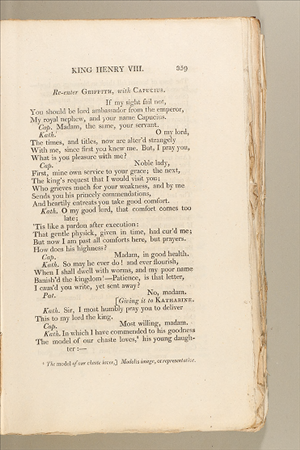 KING HENRY VIII. 239
Re-enter GRIFFITH, with CAPUCIUS.
If my sight fail not,
You should be lord ambassador from the emperor,
My royal nephew, and your name Capucius.
Cap. Madam, the same, your servant.
Kath. O my lord,
The times, and titles, now are alter'd strangely
With me, since first you knew me. But, I pray you,
What is your pleasure with me?
Cap. Noble lady,
First, mine own service to your grace; the next,
The king's request that I would visit you;
Who grieves much for your weakness, and by me
Sends you his princely commendations,
And heartily entreats you take good comfort.
Kath. O my good lord, that comfort comes too
late;
'Tis like a pardon after execution:
That gentle physick, given in time, had cur'd me;
But now I am past all comforts here, but prayers.
How does his highness?
Cap. Madam, in good health.
Kath. So may he ever do! and ever flourish,
When I shall dwell with worms, and my poor name
Banish'd the kingdom!—Patience, is that letter,
I caus'd you write, yet sent away?
Pat. No, madam.
[Giving it to KATHARINE.
Kath. Sir, I most humbly pray you to deliver
This to my lord the king.
Cap. Most willing, madam.
Kath. In which I have commended to his goodness
The model of our chaste loves,⁴ his young daugh-
ter:—
⁴ The model of our chaste loves,] Model is image, or representative.